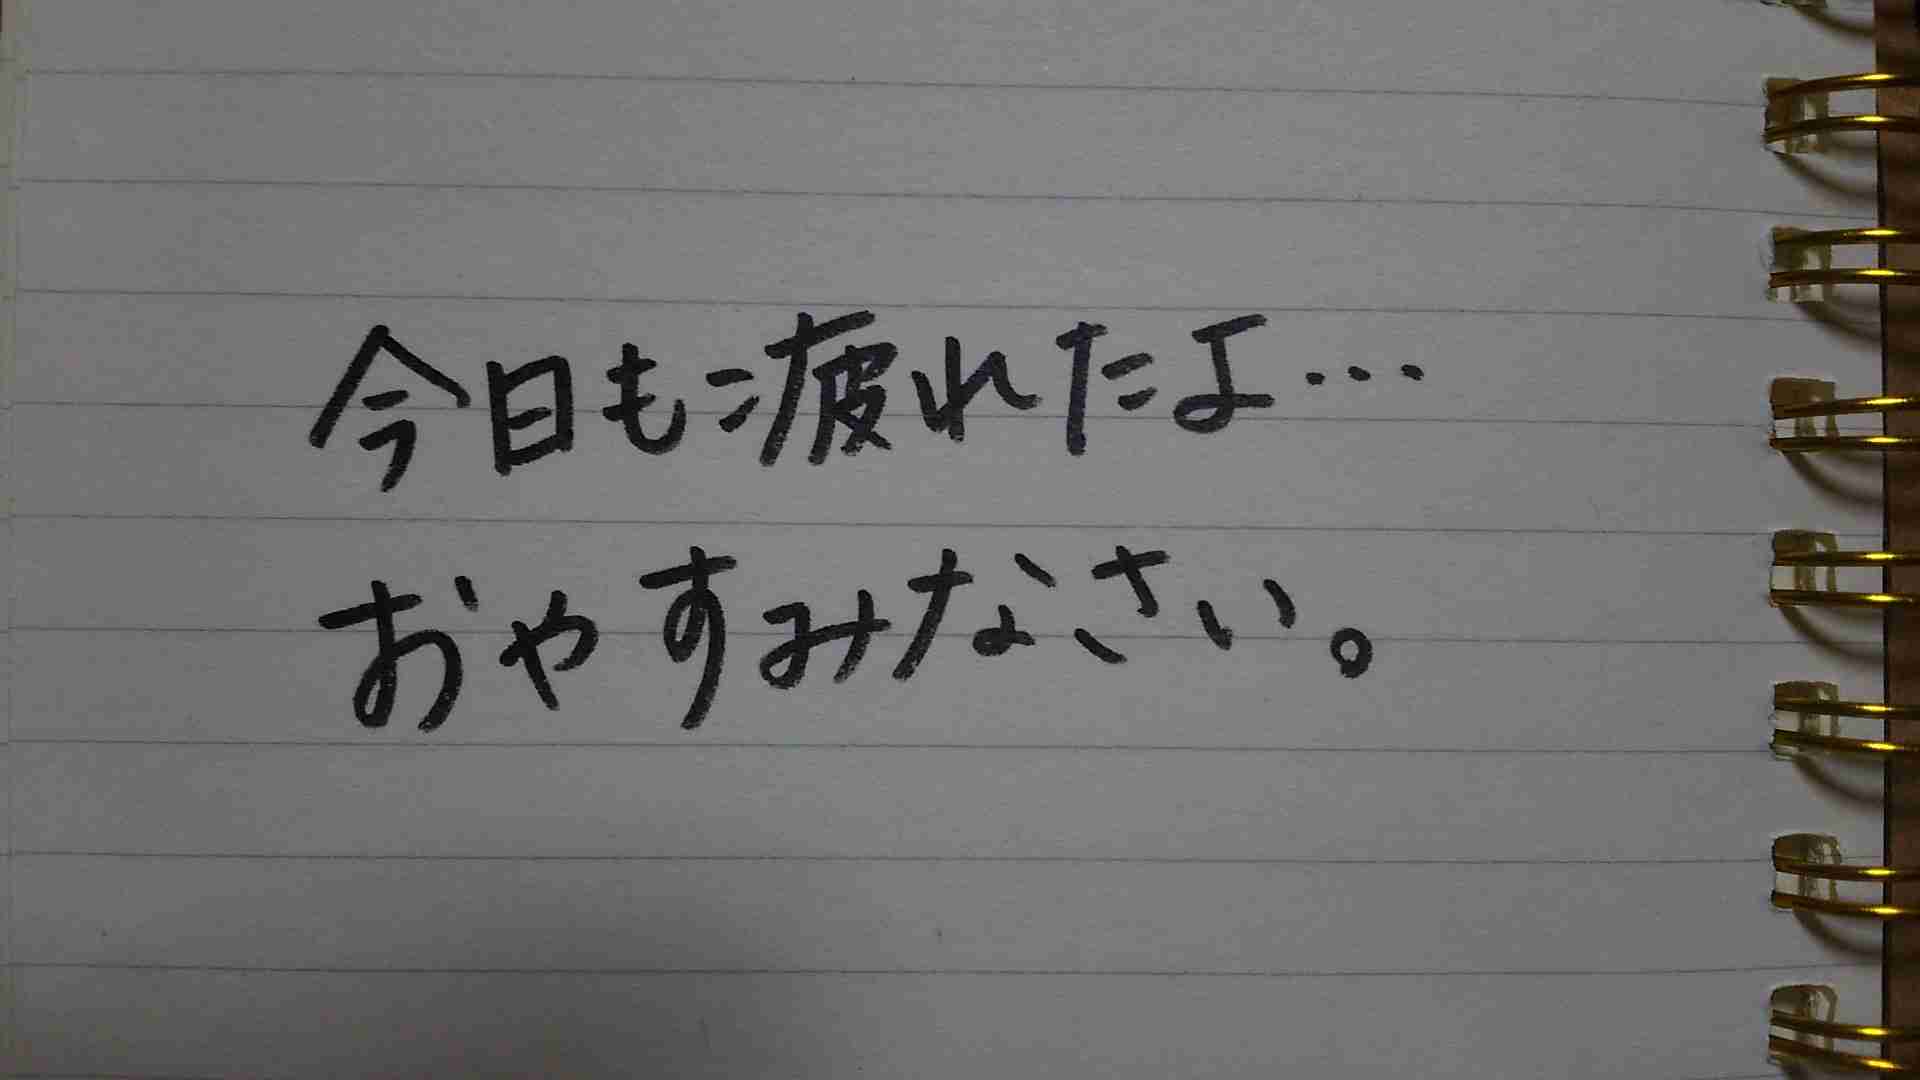 今日も疲れたよ…
おやすみなさい。